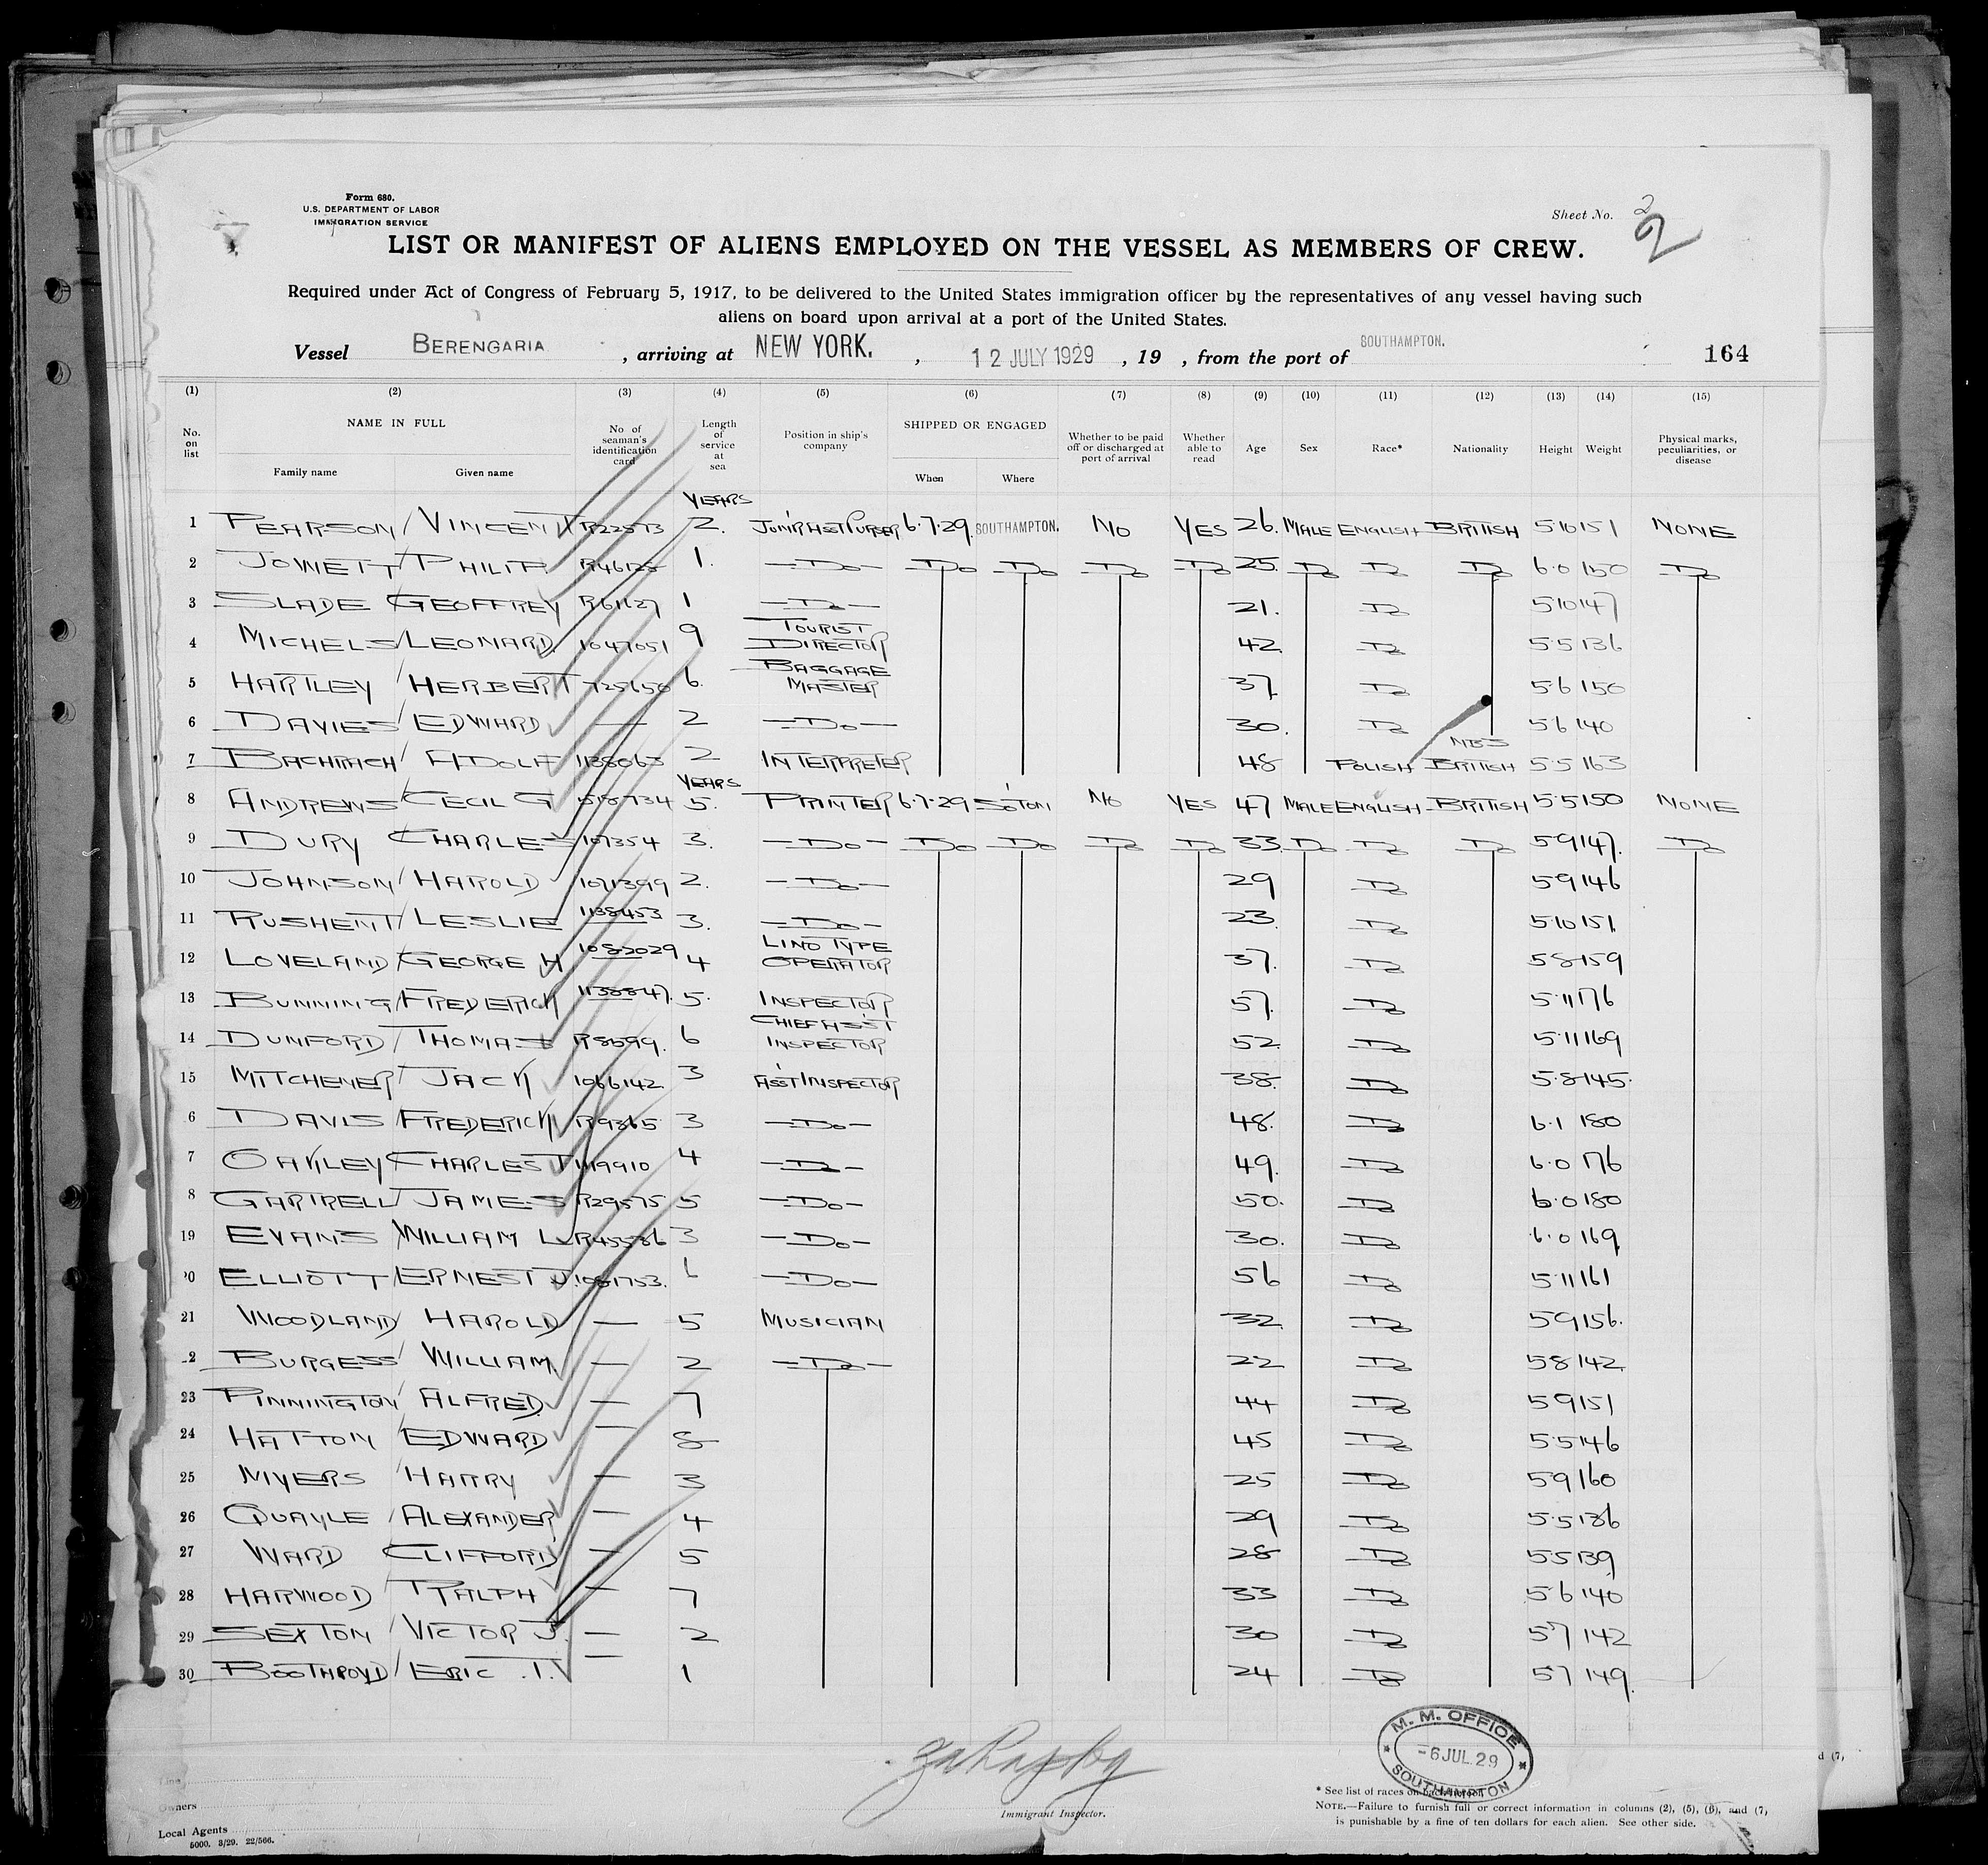 Form 680.
U.S. DEPARTMENT OF LABOR
IMMIGRATION SERVICE
Sheet No. 2
2
LIST OR MANIFEST OF ALIENS EMPLOYED ON THE VESSEL AS MEMBERS OF CREW.
Required under Act of Congress of February 5, 1917, to be delivered to the United States immigration officer by the representatives of any vessel having such
aliens on board upon arrival at a port of the United States.
Vessel BERENGARIA , arriving at NEW YORK. , 12 JULY 1929 , 19 , from the port of SOUTHAMPTON. 164
(1) (2) (3) (4) (5) (6) (7) (8) (9) (10) (11) (12) (13) (14) (15)
No. on list NAME IN FULL Family name Given name No. of seaman's identification card Length of service at sea Position in ship's company SHIPPED OR ENGAGED When Where Whether to be paid off or discharged at port of arrival Whether able to read Age Sex Race* Nationality Height Weight Physical marks, peculiarities, or disease
YEARS
1 PEARSON VINCENT R22573 2. JUN'R ASST PURSER 6.7.29. SOUTHAMPTON. NO YES 26. MALE ENGLISH BRITISH 5.10 151 NONE
2 JOWETT PHILIP 1. —Do— Do Do Do Do 25. Do Do Do 6.0 150 Do
3 SLADE GEOFFREY R61127 1 —Do— 21. Do 5.10 147
4 MICHELS LEONARD 1047051 9 TOURIST DIRECTOR 42 Do 5.5 136
5 HARTLEY HERBERT 725650 6. BAGGAGE MASTER 37. Do 5.6 150
6 DAVIES EDWARD — 2 —Do— 30. Do 5.6 140
7 BACHRACH ADOLF 1138063 2 INTERPRETER 48 POLISH BRITISH 5.5 163
YEARS
8 ANDREWS CECIL G 518734 5. PRINTER 6.7.29 SOTON NO YES 47 MALE ENGLISH BRITISH 5.5 150 NONE
9 DURY CHARLES 107354 3. —Do— Do Do Do Do 33. Do Do Do 5.9 147. Do
10 JOHNSON HAROLD 1071399 2. —Do— 29 Do 5.9 146
11 RUSHENT LESLIE 1138453 3. —Do— 23. Do 5.10 151
12 LOVELAND GEORGE H 1082029 4 LINO TYPE OPERATOR 37. Do 5.8 159
13 BUNNING FREDERICK 1138847. 5. INSPECTOR 57. Do 5.11 176
14 DUNFORD THOMAS R8599. 6 CHIEF ASS'T INSPECTOR 52. Do 5.11 169
15 MITCHENER JACK 1066142 3 ASS'T INSPECTOR 38. Do 5.8 145.
6 DAVIS FREDERICK R9365 3 —Do— 48. Do 6.1 180
7 OAKLEY CHARLES J 1119910 4 —Do— 49. Do 6.0 176
8 GARTRELL JAMES R29575 5 —Do— 50. Do 6.0 180
19 EVANS WILLIAM L R45586 3 —Do— 30. Do 6.0 169
20 ELLIOTT ERNEST J. 1081753. 6 —Do— 56 Do 5.11 161
21 WOODLAND HAROLD — 5 MUSICIAN 32. Do 5.9 156.
2 BURGESS WILLIAM — 2 —Do— 22 Do 5.8 142.
23 PINNINGTON ALFRED. — 7 44 Do 5.9 151
24 HATTON EDWARD — 8 45 Do 5.5 146
25 MYERS HARRY — 3 25 Do 5.9 160
26 QUAYLE ALEXANDER — 4 29 Do 5.5 136
27 WARD CLIFFORD — 5 28 Do 5.5 139
28 HARWOOD RALPH — 7 33 Do 5.6 140
29 SEXTON VICTOR J. — 2 30 Do 5.7 142
30 BOOTHROYD ERIC .T. — 1 24 Do 5.7 149.
M. M. OFFICE
-6 JUL 29
SOUTHAMPTON
Immigrant Inspector.
Owners
Local Agents
5000. 3/29. 22/566.
* See list of races on back hereof.
NOTE.—Failure to furnish full or correct information in columns (2), (5), (6), and (7,
is punishable by a fine of ten dollars for each alien. See other side.
d (7,